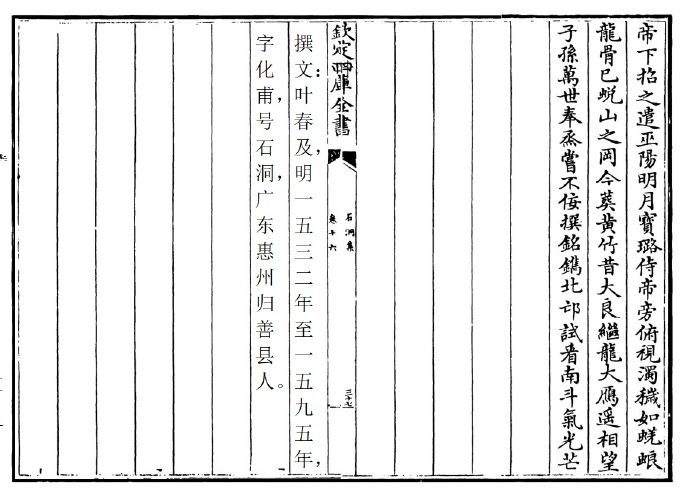 帝下招之遣巫陽明月寶璐侍帝旁俯視濁穢如蜣蜋
龍骨已蛻山之岡今葬黃竹昔大良繼龍大鴈遥相望
子孫萬世奉烝嘗不佞撰銘鐫北邙試看南斗氣光芒
欽定四庫全書
石洞集
卷十六
三十七
撰文：叶春及，明一五三二年至一五九五年，
字化甫，号石洞，广东惠州归善县人。